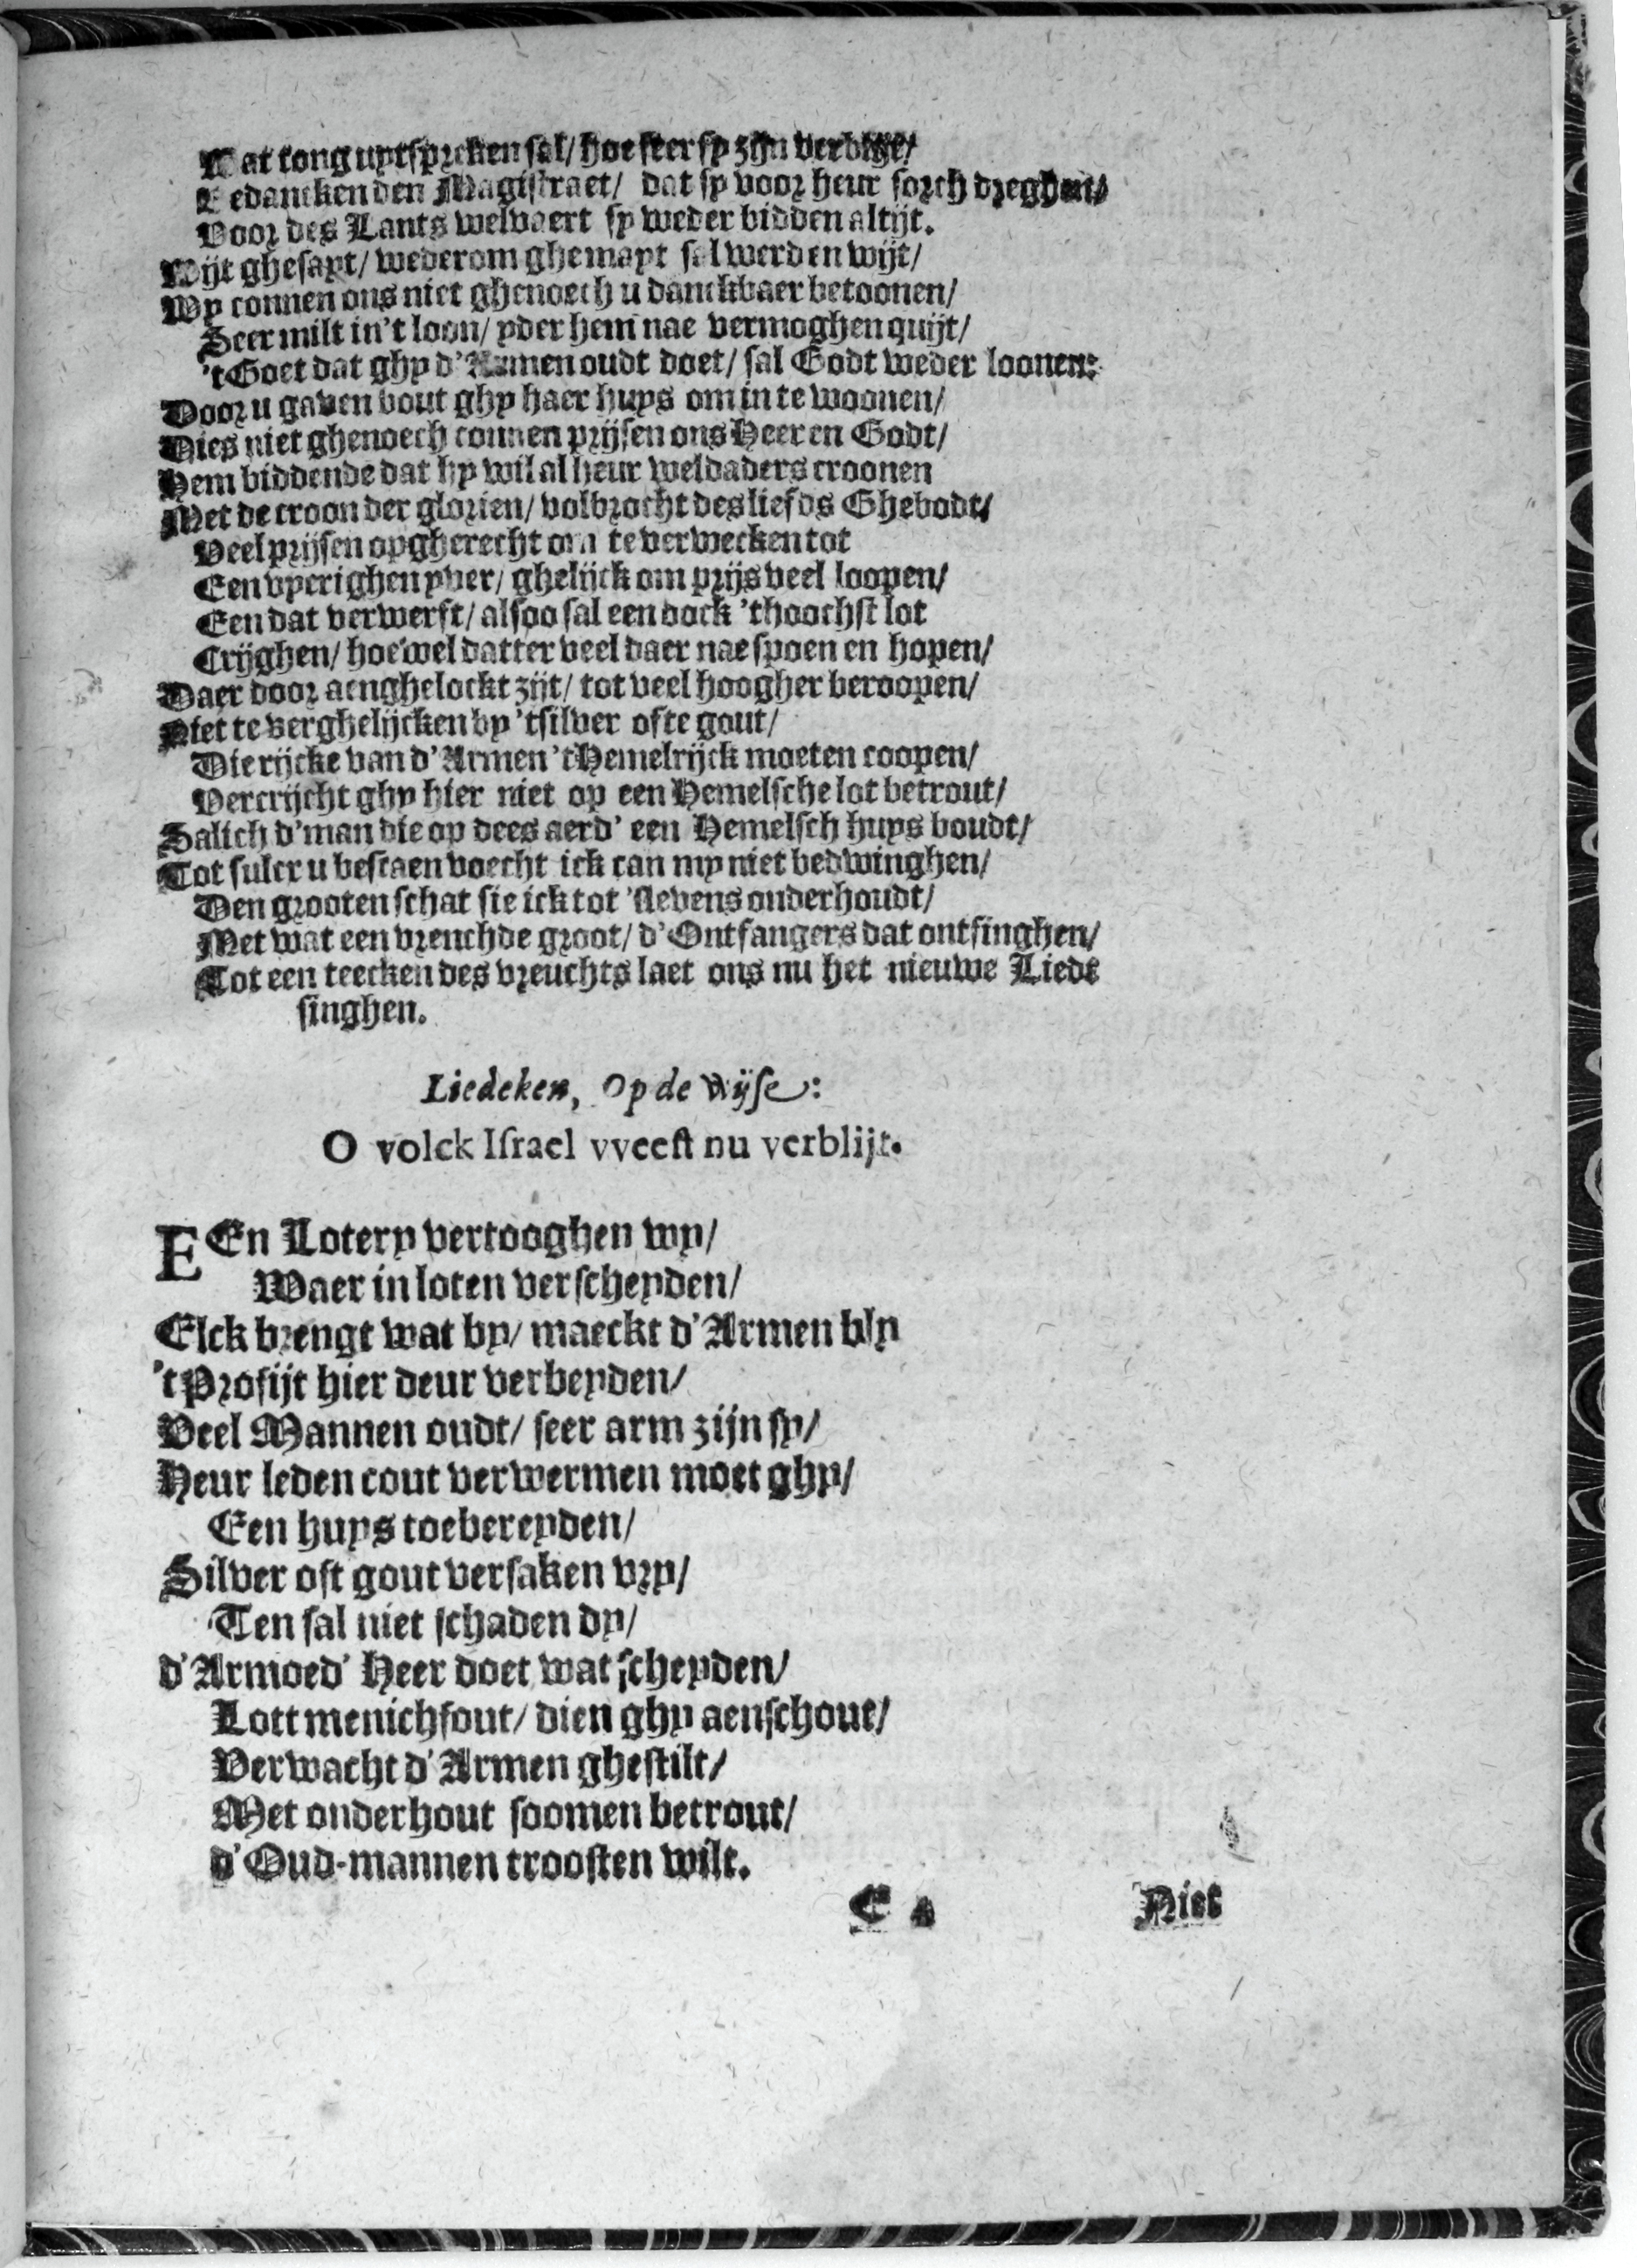 Wat tong uytspreken sal/ hoe seer sy zijn verblijt/
Bedancken den Magistraet/ dat sy voor heur sorch dreghen/
Voor des Lants welvaert sy weder bidden altijt.
Wijt ghesayt/ wederom ghemayt sal werden wijt/
Wy connen ons niet ghenoech u danckbaer betoonen/
Seer milt in't loon/ yder hem nae vermoghen quijt/
't Goet dat ghy d'Armen oudt doet/ sal Godt weder loonen:
Door u gaven bout ghy haer huys om in te woonen/
Dies niet ghenoech connen prijsen ons Heer en Godt/
Hem biddende dat hy wil al heur weldaders croonen
Met de croon der glorien/ volbrocht des liefds Ghebodt/
Veel prijsen opgherecht om te verwecken tot
Een vyerighen yver/ ghelijck om prijs veel loopen/
Een dat verwerft/ alsoo sal een oock 'thoochst lot
Crijghen/ hoe wel datter veel daer nae spoen en hopen/
Daer door aenghelockt zijt/ tot veel hoogher beroopen/
Niet te verghelijcken by 'tsilver ofte gout/
Die rijcke van d'Armen 't Hemelrijck moeten coopen/
Vercrijcht ghy hier niet op een Hemelsche lot betrout/
Salich d'man die op dees aerd' een Hemelsch huys boudt/
Tot sulcx u bestaen voecht ick can my niet bedwinghen/
Den grooten schat sie ick tot 'slevens onderhoudt/
Met wat een vreuchde groot/ d'Ontfangers dat ontfinghen/
Tot een teecken des vreuchts laet ons nu het nieuwe Liedt
singhen.
Liedeken, Op de wijse:
O volck Israel vveest nu verblijt.
EEn Lotery vertooghen wy/
Waer in loten verscheyden/
Elck brengt wat by/ maeckt d'Armen bly
't Profijt hier deur verbeyden/
Veel Mannen oudt/ seer arm zijn sy/
Heur leden cout verwermen moet ghy/
Een huys toebereyden/
Silver oft gout versaken vry/
Ten sal niet schaden dy/
d'Armoed' Heer doet wat scheyden/
Lott menichfout/ dien ghy aenschout/
Verwacht d'Armen ghestilt/
Met onderhout soomen betrout/
d'Oud-mannen troosten wilt.
Niet